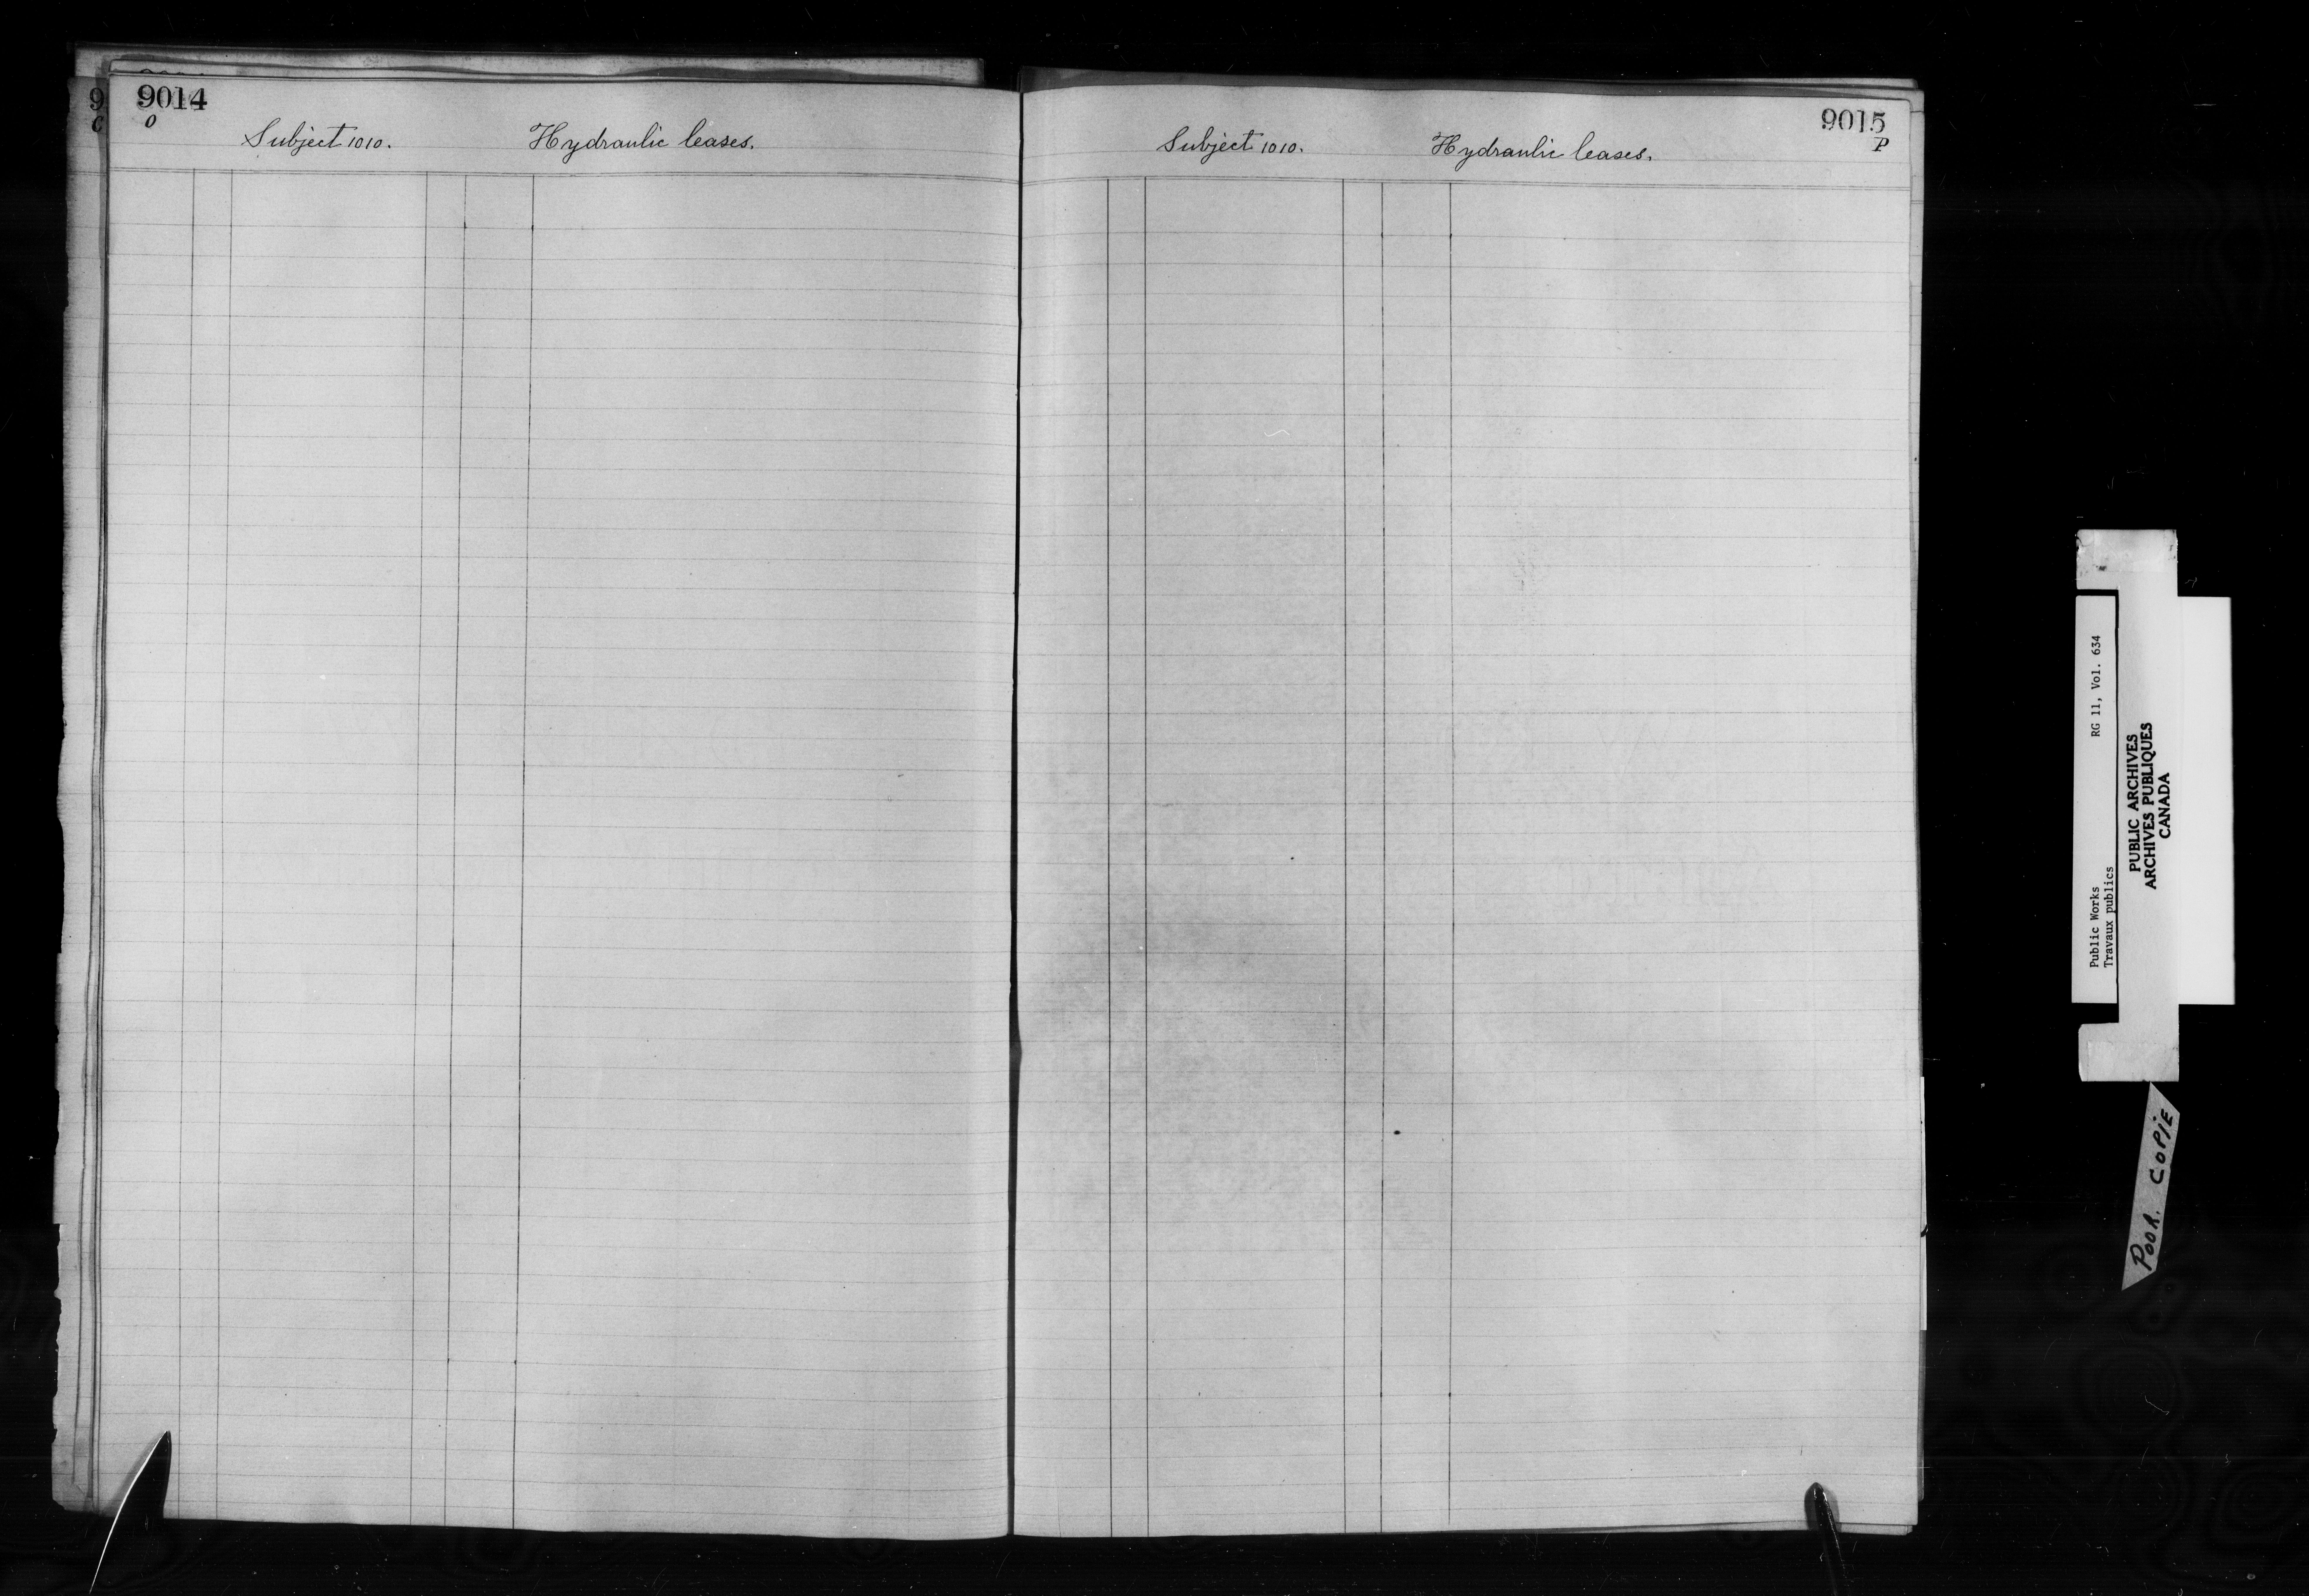 9014
O
Subject 1010. Hydraulic leases.
9
C
9015
P
Subject 1010. Hydraulic leases.
Public Works RG 11, Vol. 634
Travaux publics
PUBLIC ARCHIVES
ARCHIVES PUBLIQUES
CANADA
POOR. COPIE